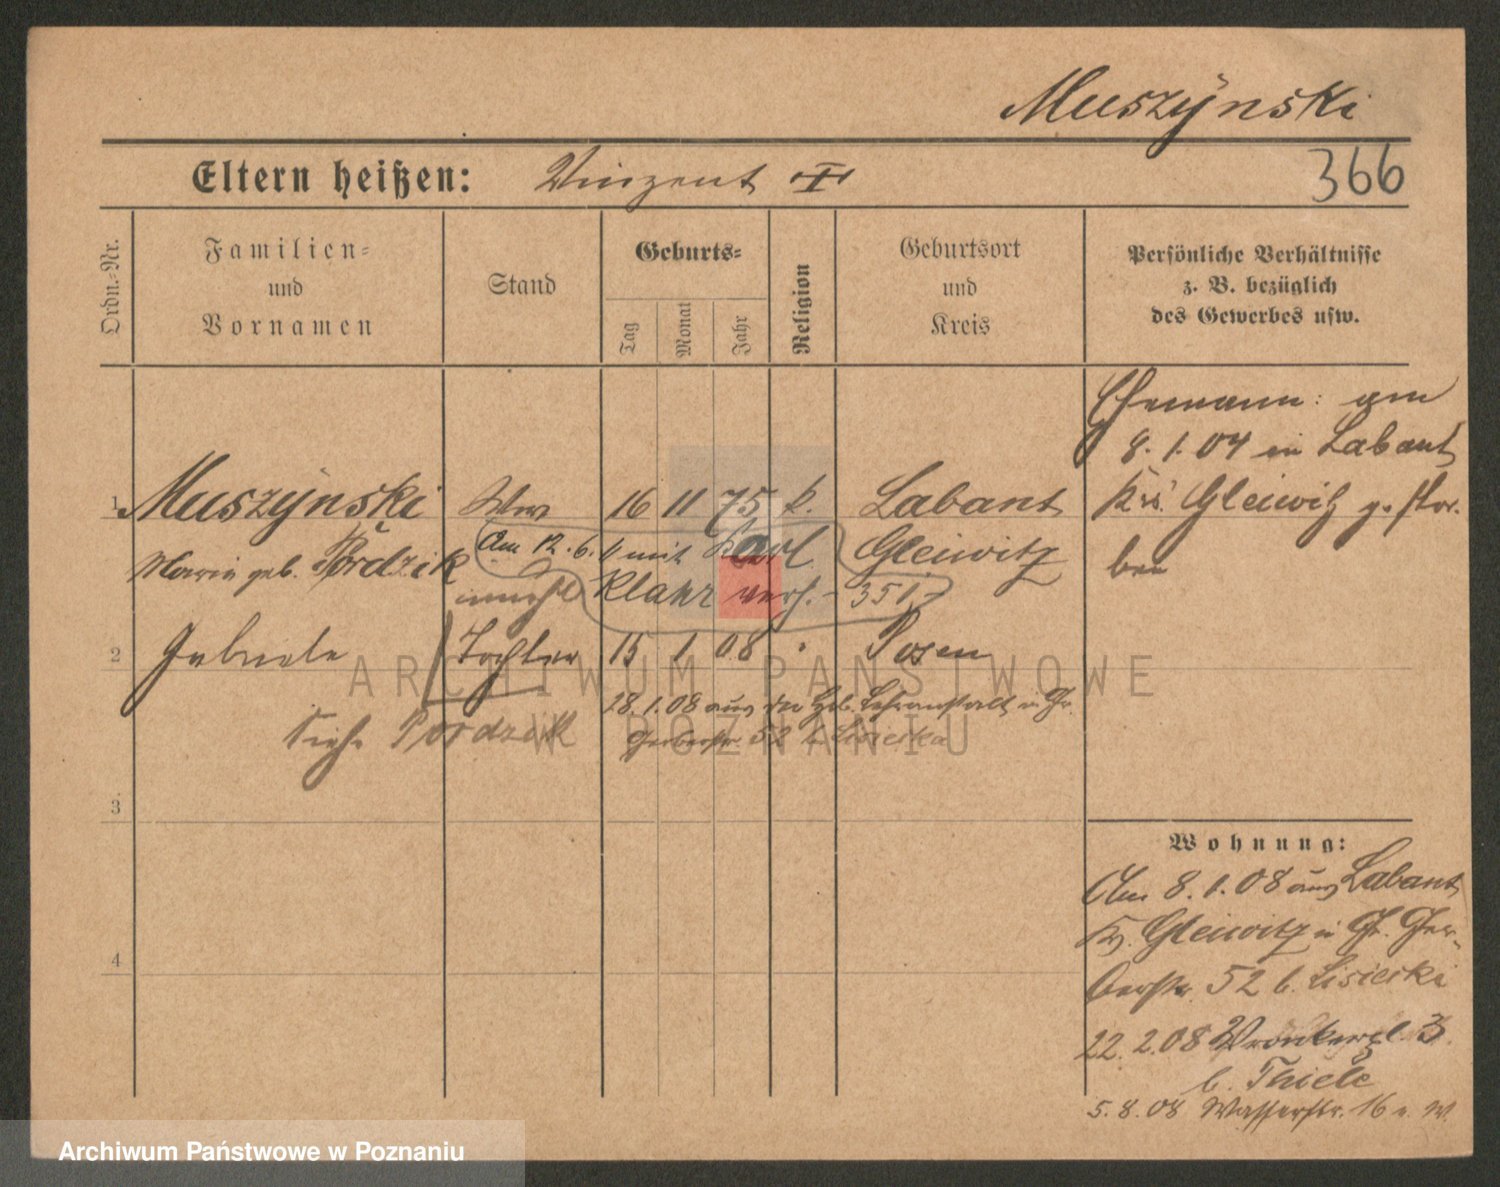 Muszÿnski
Eltern heißen: Vinzent
366
Ordn.-Nr.
Familien-
und
Vornamen
Stand
Geburts-
Tag
Monat
Jahr
Religion
Geburtsort
und
Kreis
Persönliche Verhältnisse
z. B. bezüglich
des Gewerbes usw.
Ehemann: am
8. 1. 04 in Labant
Krs. Gleiwitz gestor-
ben
1 Muszÿnski Ww 16 11 75 k. Labant
Maria geb. Pordzik Am 12. 6. mit Karl Gleiwitz
unehl Klahr verh. - 351.-
2 Gabriele Tochter 15 1 08 Posen
28. 1. 08 aus der Heb. Lehranstalt in Gr.
Siehe Pordzik Gerberstr. 52 b. Lisiecka
3
4
Wohnung:
Am 8. 1. 08 aus Labant
Kr. Gleiwitz n Gr. Ger-
berstr. 52 b. Lisiecki
22. 2. 08 Wronkerpl. 3
b. Thiele
5. 8. 08 Wasserstr. 16 b. W.
ARCHIWUM PAŃSTWOWE
W POZNANIU
Archiwum Państwowe w Poznaniu